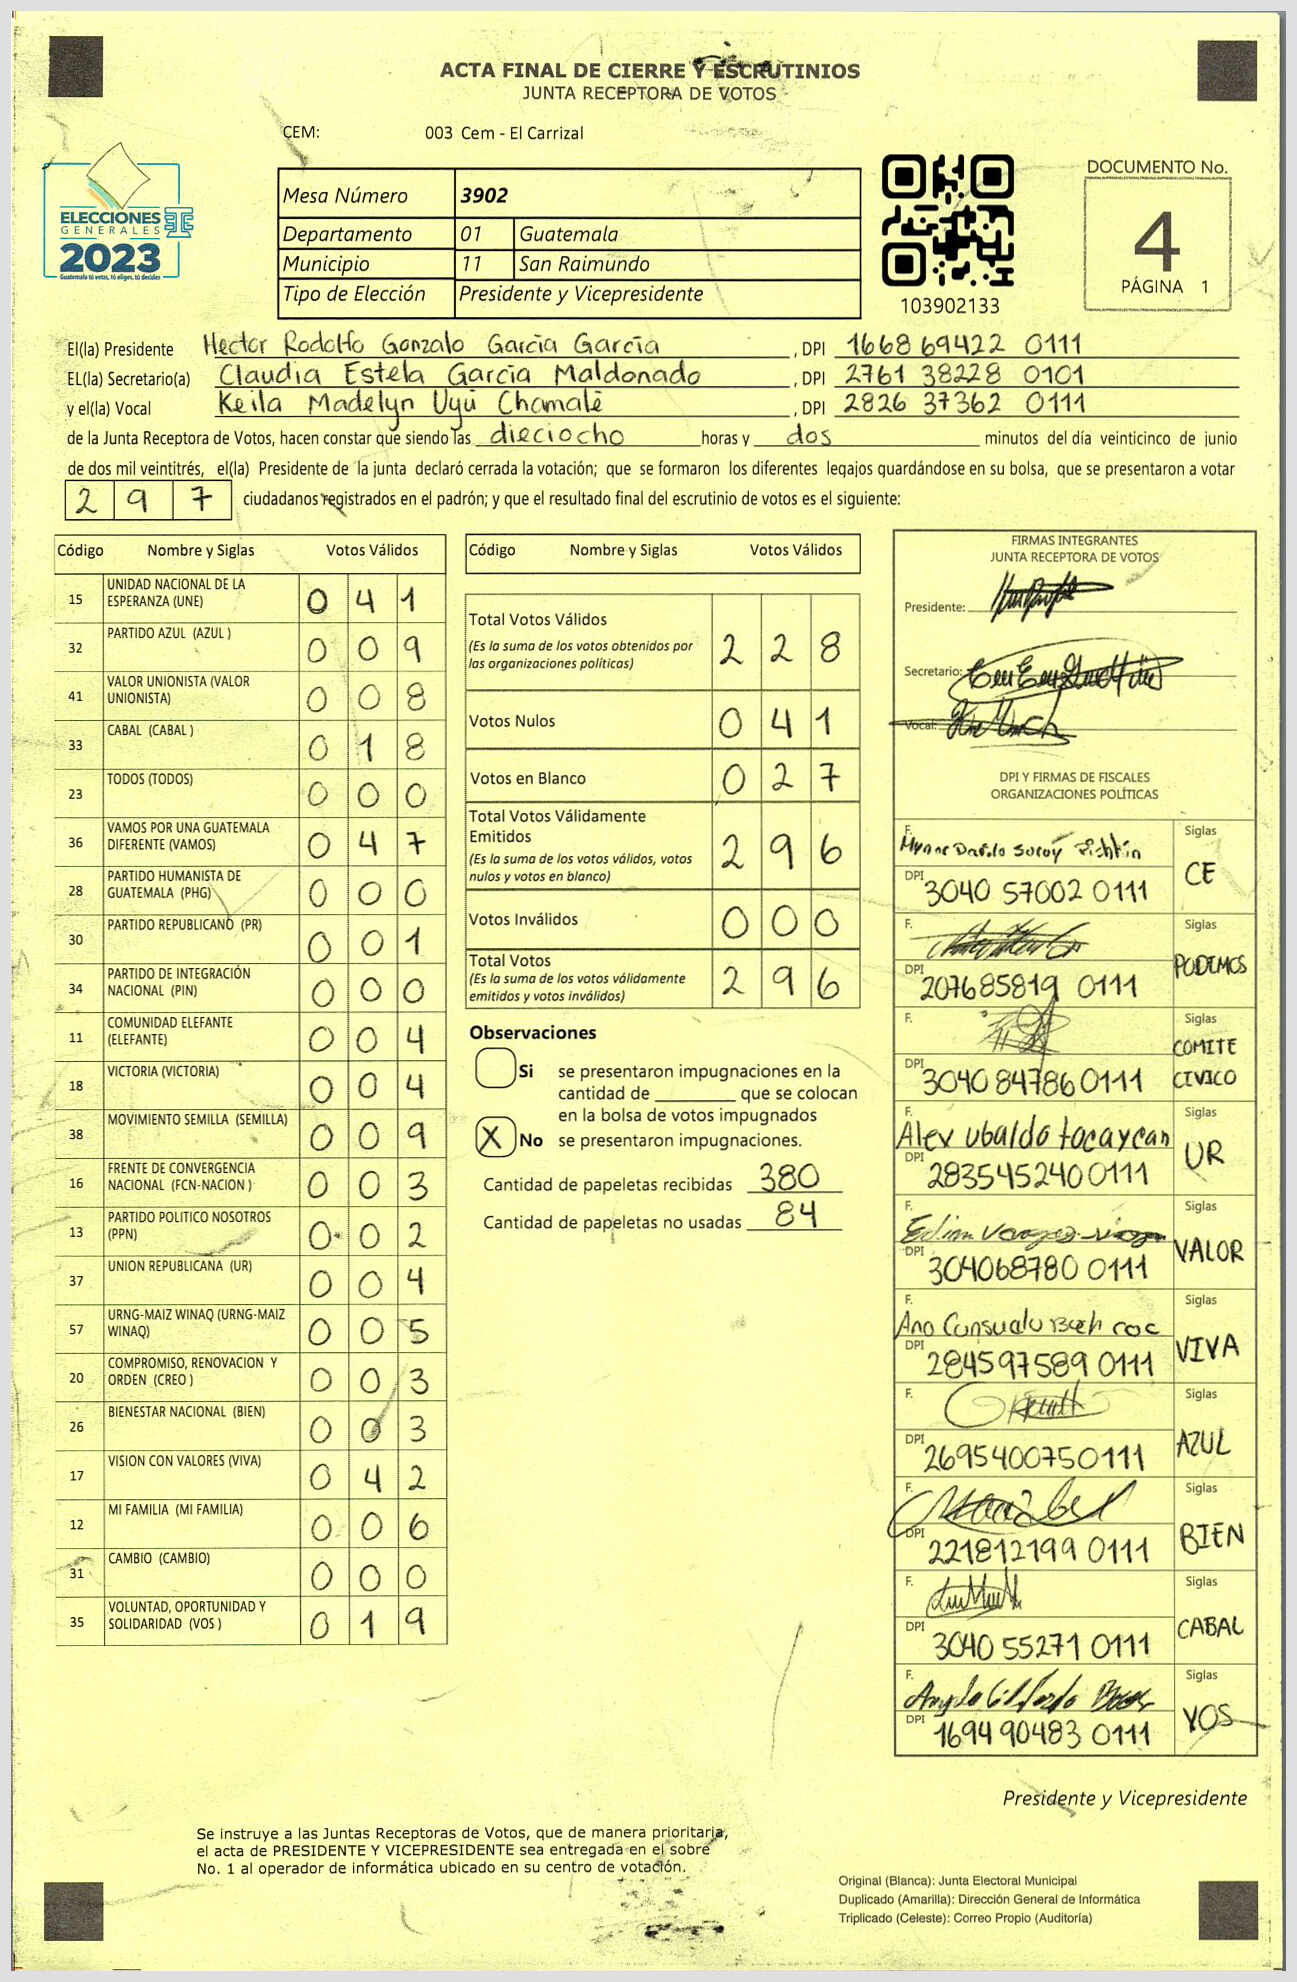 ACTA FINAL DE CIERRE Y ESCRUTINIOS
JUNTA RECEPTORA DE VOTOS
CEM: 003 Cem - El Carrizal
ELECCIONES
GENERALES
2023
Guatemala tú votas, tú eliges, tú decides
Mesa Número 3902
Departamento 01 Guatemala
Municipio 11 San Raimundo
Tipo de Elección Presidente y Vicepresidente
103902133
DOCUMENTO No.
4
PÁGINA 1
El(la) Presidente Hector Rodolfo Gonzalo García García , DPI 1668 69422 0111
EL(la) Secretario(a) Claudia Estela García Maldonado , DPI 2761 38228 0101
y el(la) Vocal Keila Madelyn Uyú Chamalé , DPI 2826 37362 0111
de la Junta Receptora de Votos, hacen constar que siendo las dieciocho horas y dos minutos del día veinticinco de junio
de dos mil veintitrés, el(la) Presidente de la junta declaró cerrada la votación; que se formaron los diferentes legajos guardándose en su bolsa, que se presentaron a votar
2 9 7 ciudadanos registrados en el padrón; y que el resultado final del escrutinio de votos es el siguiente:
Código Nombre y Siglas Votos Válidos
15 UNIDAD NACIONAL DE LA ESPERANZA (UNE) 0 4 1
32 PARTIDO AZUL (AZUL ) 0 0 9
41 VALOR UNIONISTA (VALOR UNIONISTA) 0 0 8
33 CABAL (CABAL ) 0 1 8
23 TODOS (TODOS) 0 0 0
36 VAMOS POR UNA GUATEMALA DIFERENTE (VAMOS) 0 4 7
28 PARTIDO HUMANISTA DE GUATEMALA (PHG) 0 0 0
30 PARTIDO REPUBLICANO (PR) 0 0 1
34 PARTIDO DE INTEGRACIÓN NACIONAL (PIN) 0 0 0
11 COMUNIDAD ELEFANTE (ELEFANTE) 0 0 4
18 VICTORIA (VICTORIA) 0 0 4
38 MOVIMIENTO SEMILLA (SEMILLA) 0 0 9
16 FRENTE DE CONVERGENCIA NACIONAL (FCN-NACION ) 0 0 3
13 PARTIDO POLITICO NOSOTROS (PPN) 0 0 2
37 UNION REPUBLICANA (UR) 0 0 4
57 URNG-MAIZ WINAQ (URNG-MAIZ WINAQ) 0 0 5
20 COMPROMISO, RENOVACION Y ORDEN (CREO ) 0 0 3
26 BIENESTAR NACIONAL (BIEN) 0 0 3
17 VISION CON VALORES (VIVA) 0 4 2
12 MI FAMILIA (MI FAMILIA) 0 0 6
31 CAMBIO (CAMBIO) 0 0 0
35 VOLUNTAD, OPORTUNIDAD Y SOLIDARIDAD (VOS ) 0 1 9
Código Nombre y Siglas Votos Válidos
Total Votos Válidos
(Es la suma de los votos obtenidos por
las organizaciones políticas) 2 2 8
Votos Nulos 0 4 1
Votos en Blanco 0 2 7
Total Votos Válidamente
Emitidos
(Es la suma de los votos válidos, votos
nulos y votos en blanco) 2 9 6
Votos Inválidos 0 0 0
Total Votos
(Es la suma de los votos válidamente
emitidos y votos inválidos) 2 9 6
Observaciones
Si se presentaron impugnaciones en la
cantidad de ________ que se colocan
en la bolsa de votos impugnados
X No se presentaron impugnaciones.
Cantidad de papeletas recibidas 380
Cantidad de papeletas no usadas 84
FIRMAS INTEGRANTES
JUNTA RECEPTORA DE VOTOS
Presidente:
Secretario:
Vocal:
DPI Y FIRMAS DE FISCALES
ORGANIZACIONES POLÍTICAS
F. Siglas
DPI 3040 57002 0111 CE
F. Siglas
DPI 207685819 0111 PODEMOS
F. Siglas
DPI 3040 84786 0111 COMITE CIVICO
F. Alex Ubaldo tocaycan Siglas
DPI 2835452400111 UR
F. Siglas
DPI 304068780 0111 VALOR
F. Siglas
DPI 284597589 0111 VIVA
F. Siglas
DPI 2695400750111 AZUL
F. Siglas
DPI 221812199 0111 BIEN
F. Siglas
DPI 3040 55271 0111 CABAL
F. Siglas
DPI 1694 90483 0111 VOS
Presidente y Vicepresidente
Se instruye a las Juntas Receptoras de Votos, que de manera prioritaria,
el acta de PRESIDENTE Y VICEPRESIDENTE sea entregada en el sobre
No. 1 al operador de informática ubicado en su centro de votación.
Original (Blanca): Junta Electoral Municipal
Duplicado (Amarilla): Dirección General de Informática
Triplicado (Celeste): Correo Propio (Auditoría)